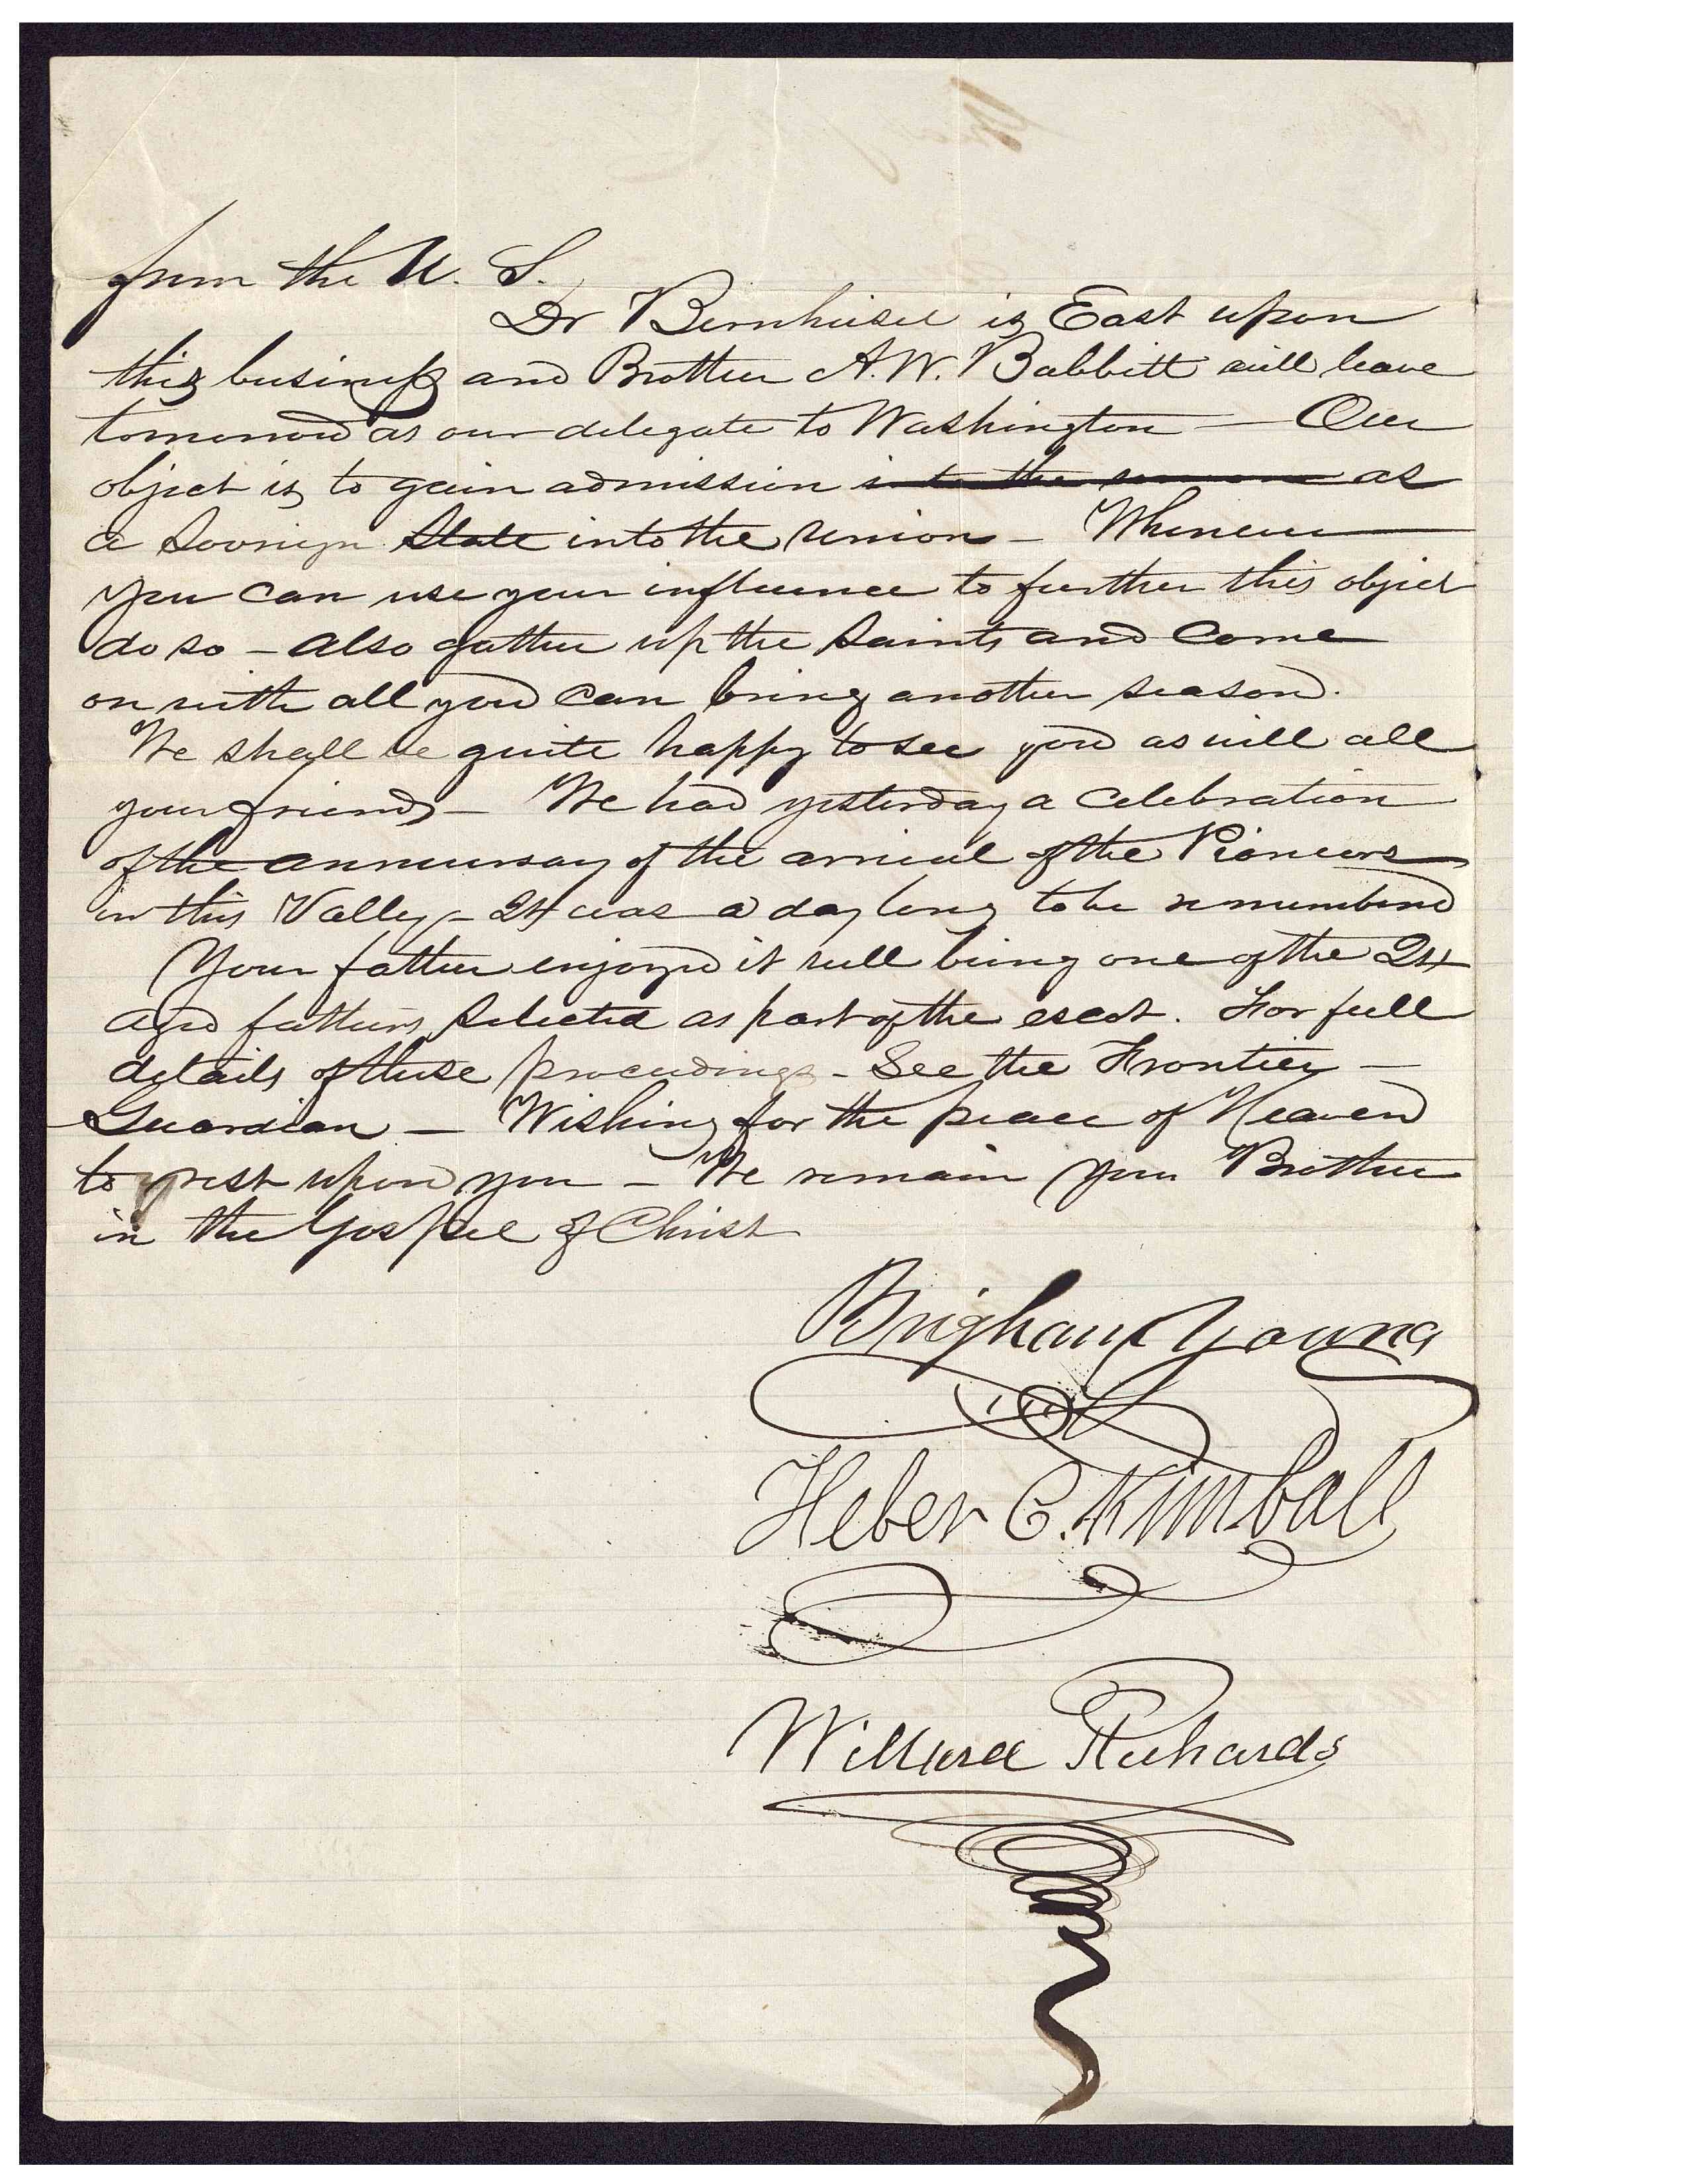 from the U. S.
Dr Bernhisel is East upon
this business and Brother A. W. Babbitt will leave
tomorrow as our delegate to Washington — Our
object is to gain admission into the union as
a Sovreign State into the Union — Whenever
you can use your influence to further this object
do so — also gather up the Saints and Come
on with all you can bring another season.
We shall be quite happy to see you as will all
your friends — We had yesterday a Celebration
of the anniversay of the arrival of the Pioneers
in this Valley — 24 was a day long to be remembered
Your father enjoyed it well being one of the 24
aged fathers Selected as part of the escort. For full
details of these proceedings — See the Frontier —
Guardian — Wishing for the peace of Heaven
to rest upon you — We remain your Brother
in the Gospel of Christ
Brigham Young
Heber C. Kimball
Willard Richards